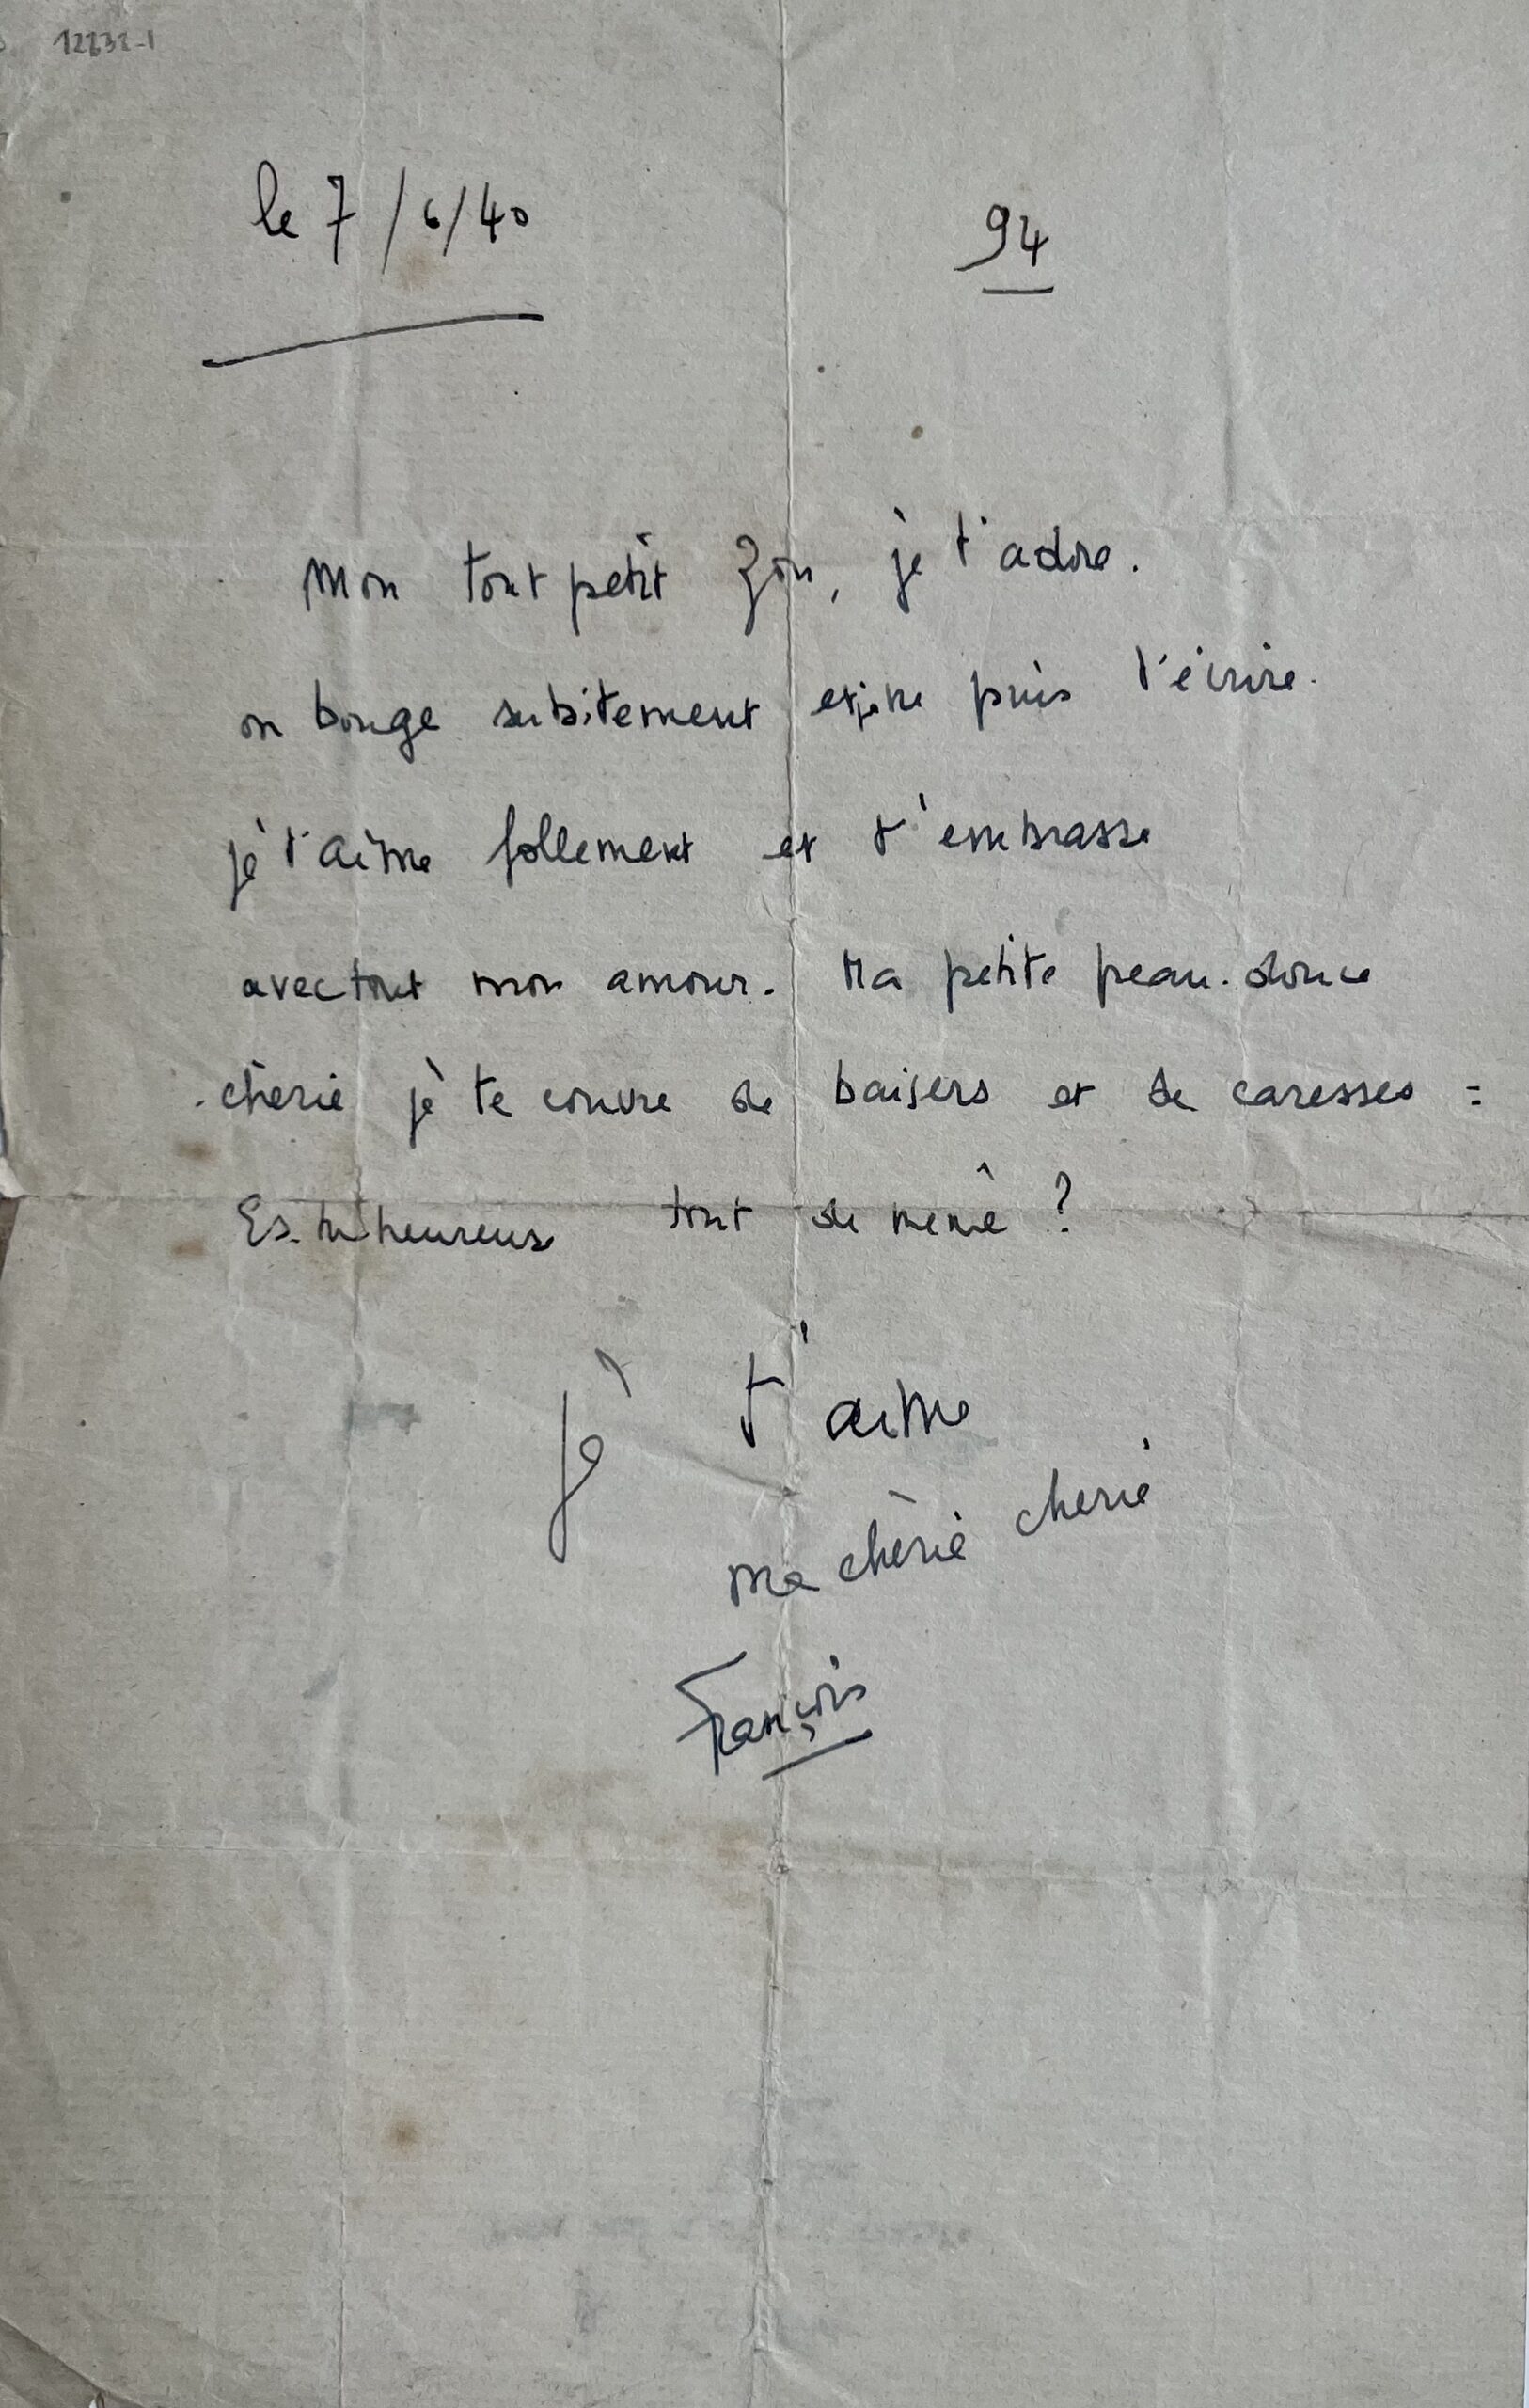 12232-1
le 7/6/40
94
Mon tout petit Zou, je t'adore.
on bouge subitement et je ne puis t'écrire.
je t'aime follement et t'embrasse
avec tout mon amour. Ma petite peau-douce
chérie je te couvre de baisers et de caresses =
Es-tu heureuse tout de même ?
Je t'aime
ma chérie chérie
François